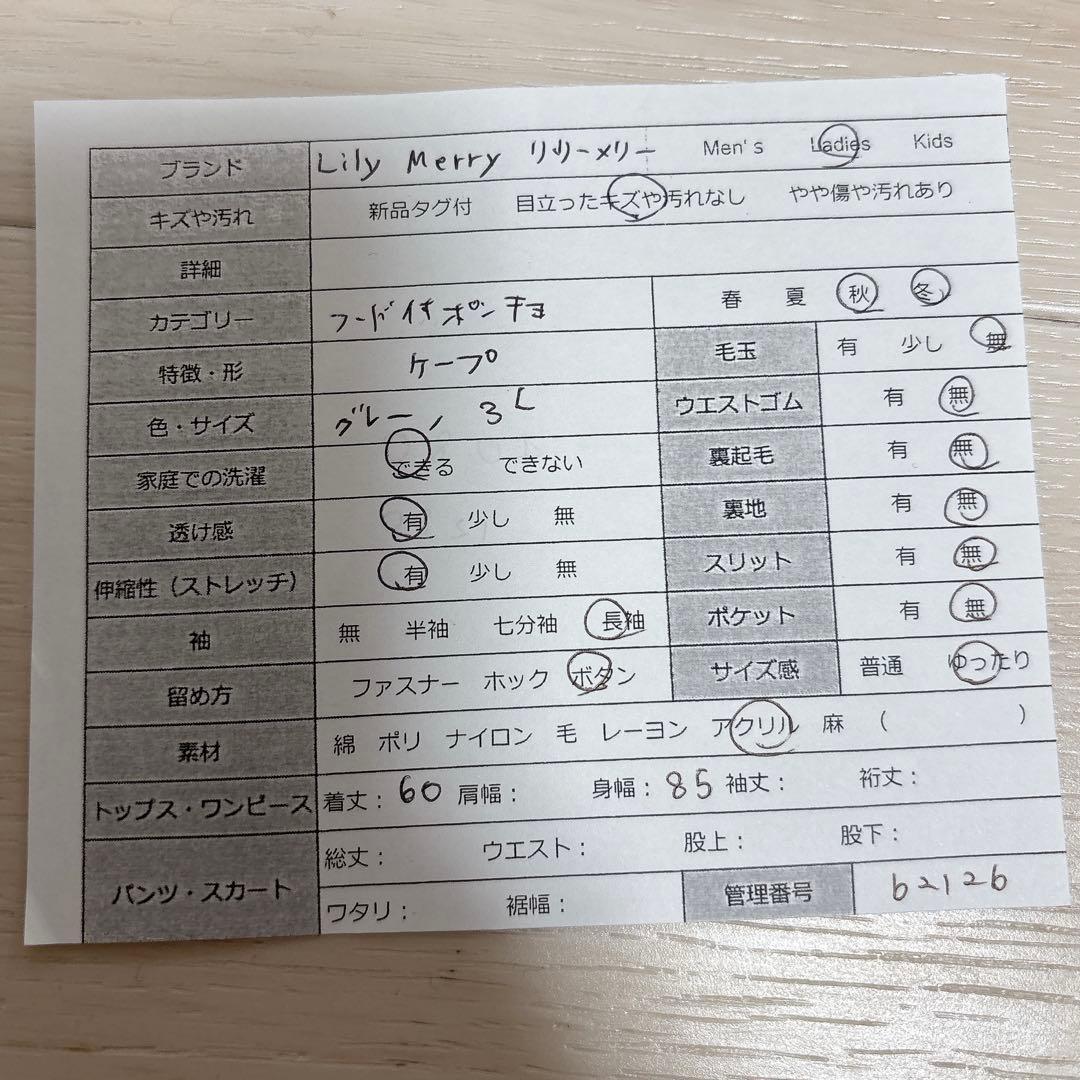 ブランド Lily Merry リリーメリー Men's Ladies Kids
キズや汚れ 新品タグ付 目立ったキズや汚れなし やや傷や汚れあり
詳細
カテゴリー フード付ポンチョ 春 夏 秋 冬
特徴・形 ケープ 毛玉 有 少し 無
色・サイズ グレー, 3L ウエストゴム 有 無
家庭での洗濯 できる できない 裏起毛 有 無
透け感 有 少し 無 裏地 有 無
伸縮性（ストレッチ） 有 少し 無 スリット 有 無
袖 無 半袖 七分袖 長袖 ポケット 有 無
留め方 ファスナー ホック ボタン サイズ感 普通 ゆったり
素材 綿 ポリ ナイロン 毛 レーヨン アクリル 麻 （ ）
トップス・ワンピース 着丈：60 肩幅： 身幅：85 袖丈： 裄丈：
パンツ・スカート 総丈： ウエスト： 股上： 股下：
ワタリ： 裾幅： 管理番号 62126